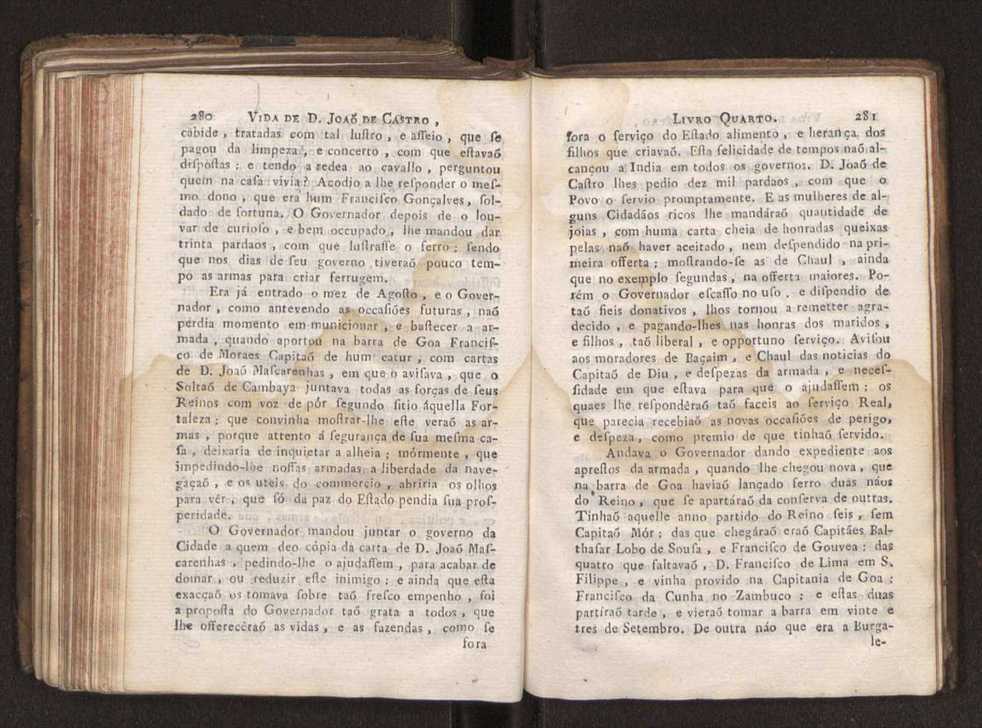 280 VIDA DE D. JOAÕ DE CASTRO ,
cabide , tratadas com tal luſtro , e aſſeio , que ſe
pagou da limpeza , e concerto , com que eſtavaõ
diſpoſtas ; e tendo a redea ao cavallo , perguntou
quem na caſa vivia ? Acodio a lhe reſponder o meſ-
mo dono , que era hum Franciſco Gonçalves , ſol-
dado de fortuna. O Governador depois de o lou-
var de curioſo , e bem occupado , lhe mandou dar
trinta pardaos , com que luſtraſſe o ferro ; ſendo
que nos dias de ſeu governo tiveraõ pouco tem-
po as armas para criar ferrugem.
Era já entrado o mez de Agoſto , e o Gover-
nador , como antevendo as occaſiões futuras , naõ
perdia momento em municionar , e baſtecer a ar-
mada , quando aportou na barra de Goa Franciſ-
co de Moraes Capitaõ de hum catur , com cartas
de D. Joaõ Maſcarenhas , em que o aviſava , que o
Soltaõ de Cambaya juntava todas as forças de ſeus
Reinos com voz de pôr ſegundo ſitio áquella For-
taleza ; que convinha moſtrar-lhe eſte veraõ as ar-
mas , porque attento á ſegurança de ſua meſma ca-
ſa , deixaria de inquietar a alheia ; mórmente , que
impedindo-lhe noſſas armadas a liberdade da nave-
gaçaõ , e os uteis do commercio , abriria os olhos
para vêr , que ſó da paz do Eſtado pendia ſua proſ-
peridade.
O Governador mandou juntar o governo da
Cidade a quem deo cópia da carta de D. Joaõ Maſ-
carenhas , pedindo-lhe o ajudaſſem , para acabar de
domar , ou reduzir eſte inimigo ; e ainda que eſta
exacçaõ os tomava ſobre taõ freſco empenho , foi
a propoſta do Governador taõ grata a todos , que
lhe offerecêraõ as vidas , e as fazendas , como ſe
fora
LIVRO QUARTO. 281
fora o ſerviço do Eſtado alimento , e herança dos
filhos que criavaõ. Eſta felicidade de tempos naõ al-
cançou a India em todos os governos. D. Joaõ de
Caſtro lhes pedio dez mil pardaos , com que o
Povo o ſervio promptamente. E as mulheres de al-
guns Cidadãos ricos lhe mandáraõ quantidade de
joias , com huma carta cheia de honradas queixas
pelas naõ haver aceitado , nem deſpendido na pri-
meira offerta ; moſtrando-ſe as de Chaul , ainda
que no exemplo ſegundas , na offerta maiores. Po-
rém o Governador eſcaſſo no uſo , e diſpendio de
taõ fieis donativos , lhos tornou a remetter agra-
decido , e pagando-lhes nas honras dos maridos ,
e filhos , taõ liberal , e opportuno ſerviço. Aviſou
aos moradores de Baçaim , e Chaul das noticias do
Capitaõ de Diu , e deſpezas da armada , e neceſ-
ſidade em que eſtava para que o ajudaſſem ; os
quaes lhe reſpondêraõ taõ faceis ao ſerviço Real,
que parecia recebiaõ as novas occaſiões de perigo,
e deſpeza , como premio de que tinhaõ ſervido.
Andava o Governador dando expediente aos
apreſtos da armada , quando lhe chegou nova , que
na barra de Goa haviaõ lançado ferro duas náos
do Reino , que ſe apartáraõ da conſerva de outras.
Tinhaõ aquelle anno partido do Reino ſeis , ſem
Capitaõ Mór ; das que chegáraõ eraõ Capitães Bal-
thaſar Lobo de Souſa , e Franciſco de Gouvea ; das
quatro que faltavaõ , D. Franciſco de Lima em S.
Filippe , e vinha provido na Capitania de Goa ;
Franciſco da Cunha no Zambuco ; e eſtas duas
partíraõ tarde , e vieraõ tomar a barra em vinte e
tres de Setembro. De outra náo que era a Burga-
le-